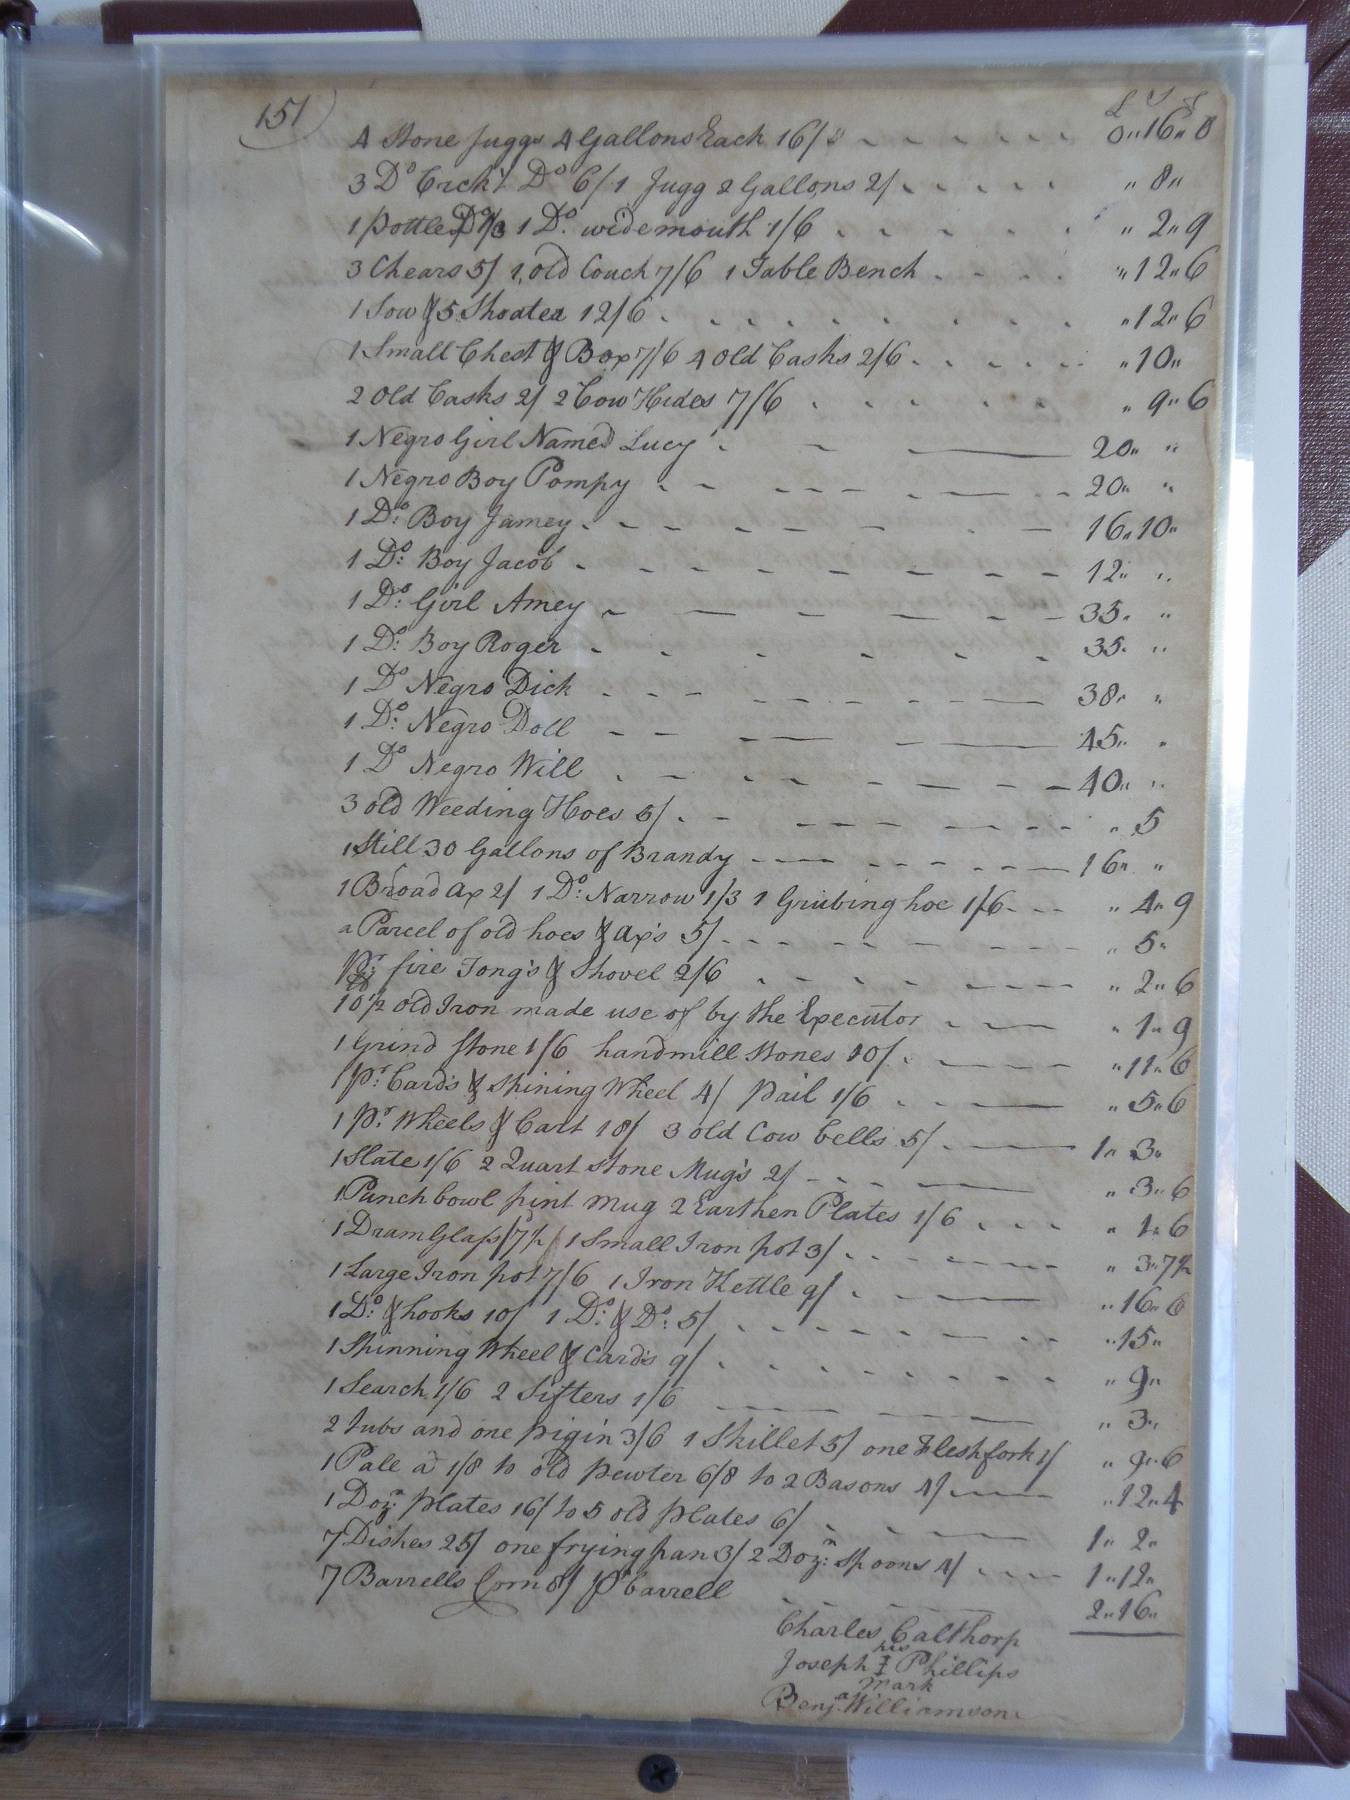 151
£ S d
4 Stone Juggs 4 Gallons Each 16/ 0"16"0
3 Do Crckt Do 6/ 1 Jugg 2 Gallons 2/ "8"
1 Pottle Do 1/3 1 Do: widemouth 1/6 "2"9
3 Chears 5/ 1 old Couch 7/6 1 Table Bench "12"6
1 Sow & 5 Shoates 12/6 "12"6
1 Small Chest & Box 7/6 4 Old Casks 2/6 "10"
2 Old Casks 2/ 2 Cow Hides 7/6 "9"6
1 Negro Girl Named Lucy 20" "
1 Negro Boy Pompy 20" "
1 Do: Boy Jamey 16"10"
1 Do: Boy Jacob 12" "
1 Do: Girl Amey 35" "
1 Do: Boy Roger 35" "
1 Do Negro Dick 38" "
1 Do: Negro Doll 45" "
1 Do Negro Will 40" "
3 old Weeding Hoes 5/ "5
1 Still 30 Gallons of Brandy 16" "
1 Broad ax 2/ 1 Do: Narrow 1/3 1 Grubing hoe 1/6 "4"9
a Parcel of old hoes & ax's 5/ "5"
Pr: fire Tong's & Shovel 2/6 "2"6
10½ old Iron made use of by the Executor "1"9
1 Grind Stone 1/6 handmill Stones 10/ "11"6
1 Pr: Card's & Spining Wheel 4/ Pail 1/6 "5"6
1 Pr. Wheels & Cart 18/ 3 old Cow bells 5/ 1"3"
1 Slate 1/6 2 Quart Stone Mug's 2/ "3"6
1 Punch bowl pint mug 2 Earthen Plates 1/6 "1"6
1 Dram Glass /7½/ 1 Small Iron pot 3/ "3"7½
1 Large Iron pot 7/6 1 Iron Kettle 9/ "16"6
1 Do: & hooks 10/ 1 Do: & Do: 5/ "15"
1 Spinning Wheel & Card's 9/ "9"
1 Search 1/6 2 Sifters 1/6 "3"
2 tubs and one pigin 3/6 1 Skillet 5/ one Flesh fork 1/ "9"6
1 Pale a 1/8 to old Pewter 6/8 to 2 Basons 4/ "12"4
1 Dozn: Plates 16/ to 5 old plates 6/ 1"2"
7 Dishes 25/ one frying pan 3/ 2 Dozn: Spoons 4/ 1"12"
7 Barrells Corn 8/ Pr barrell 2"16"
Charles Calthorp
his
Joseph I Phillips
mark
Benja. Williamson